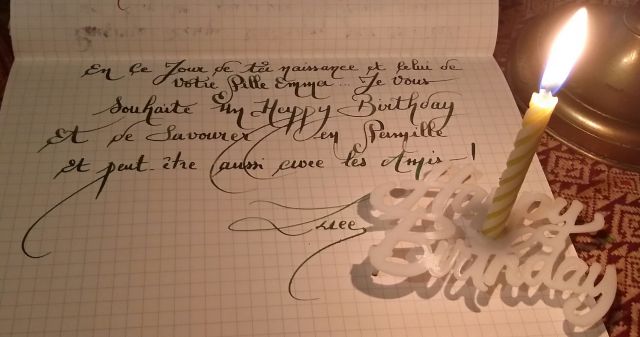 En Ce Jour de ta naissance et celui de
votre fille Emma... Je vous
Souhaite Un Happy Birthday
Et de Savourer en Famille
et peut-être aussi avec les Amis-!
Happy
Birthday